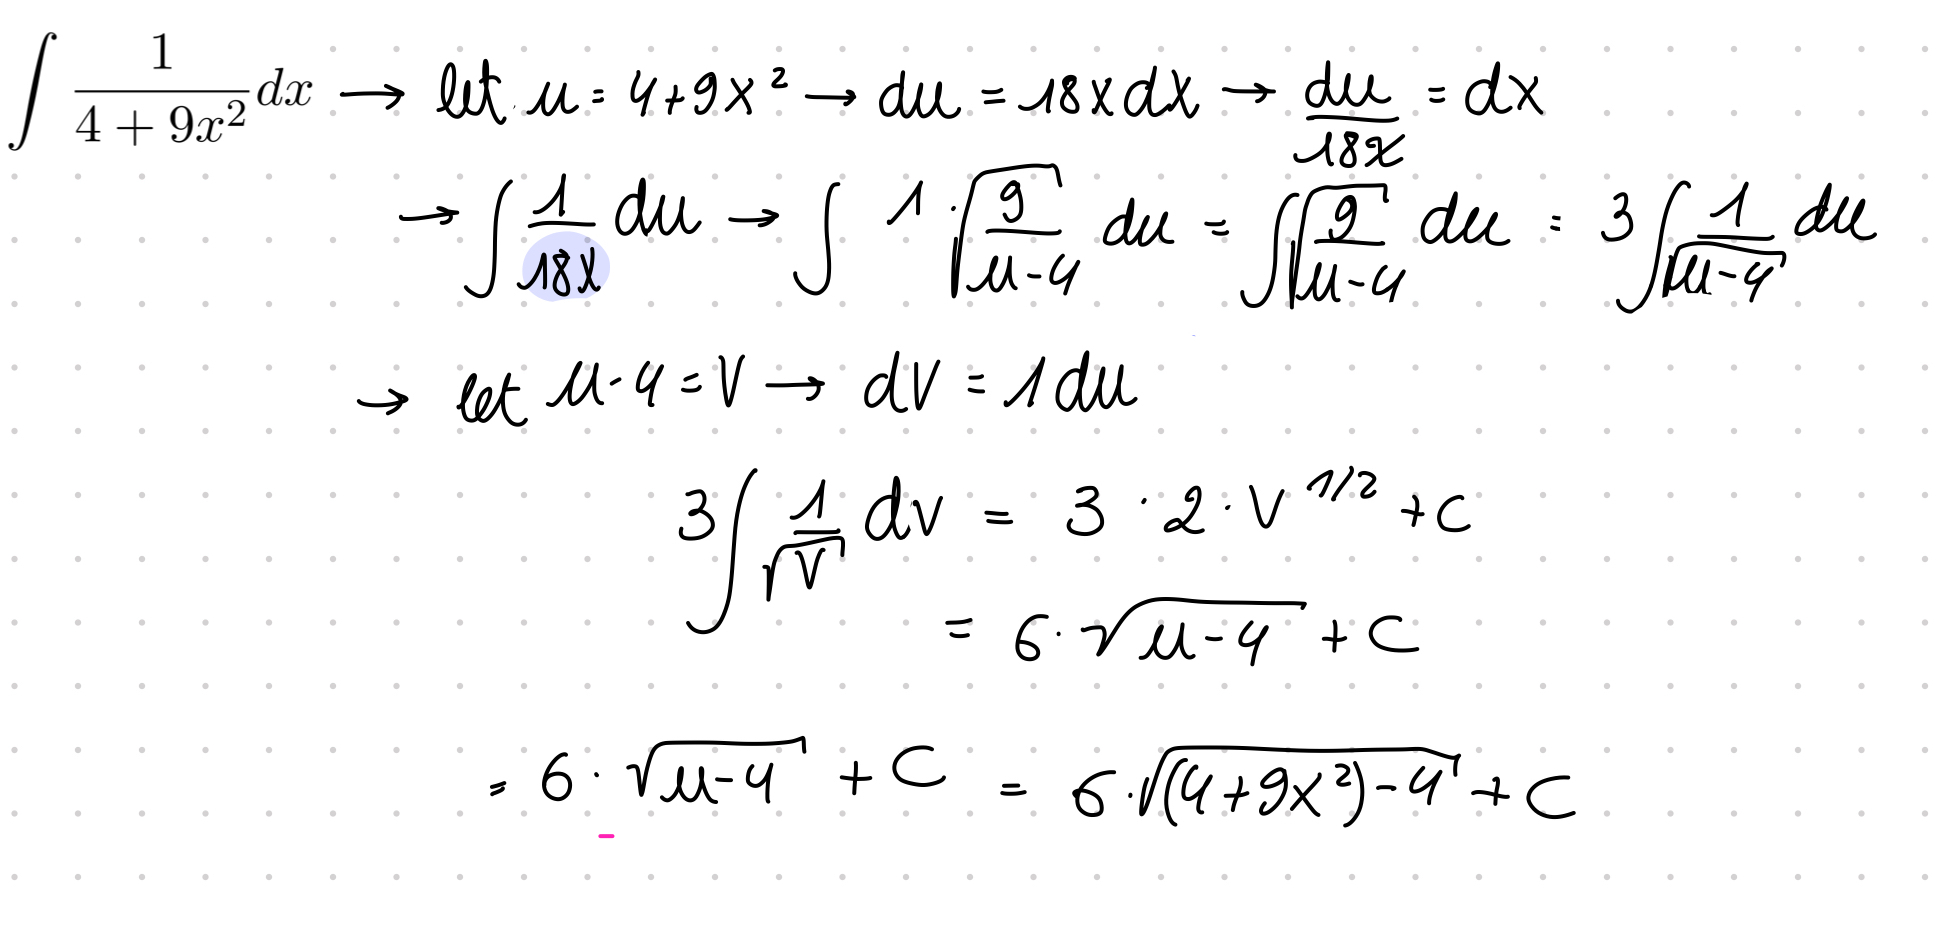 ∫ 1/(4 + 9x²) dx → let u = 4+9x² → du = 18x dx → du/18x = dx
→ ∫ 1/18x du → ∫ 1·√(9/(u-4)) du = ∫ √(9/(u-4)) du = 3 ∫ 1/√(u-4) du
→ let u-4 = V → dV = 1 du
3 ∫ 1/√V dV = 3 · 2 · V^1/2 + C
= 6·√(u-4) + C
= 6·√(u-4) + C = 6·√((4+9x²)-4) + C